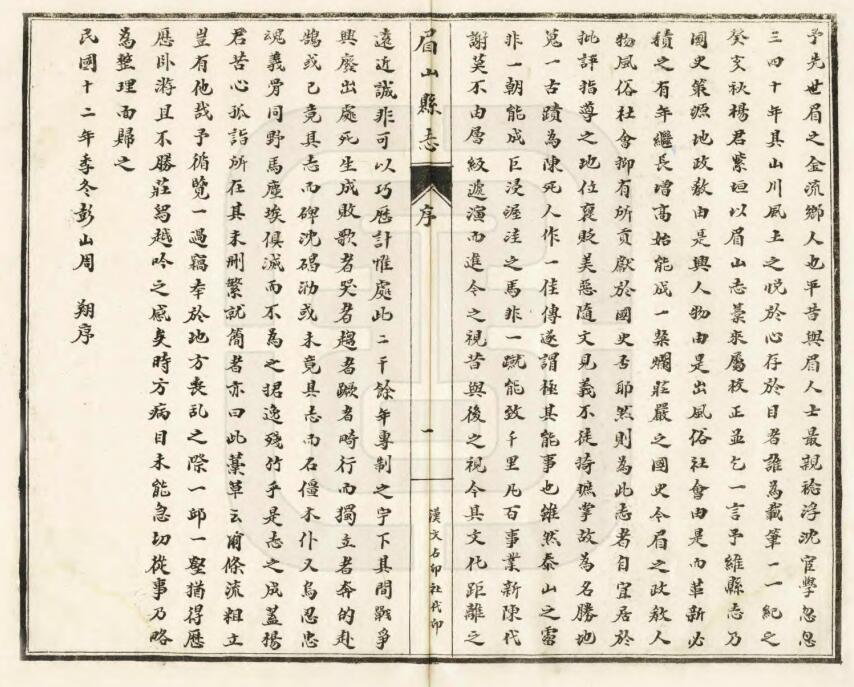 予先世眉之金流鄉人也平昔與眉人士最親稔浮沈宦學忽忽
三四十年其山川風土之悅於心存於目者誰為載筆一一紀之
癸亥秋楊君紫垣以眉山志藁來屬校正並乞一言予維縣志乃
國史策源地政教由是興人物由是出風俗社會由是而革新必
積之有年繼長增高始能成一桀爛莊嚴之國史今眉之政教人
物風俗社會抑有所貢獻於國史否耶然則為此志者自宜居於
批評指導之地位褒貶美惡隨文見義不徒掎摭掌故為名勝地
冩一古蹟為陳死人作一佳傳遂謂極其能事也雖然泰山之雷
非一朝能成巨浸渥洼之馬非一蹴能致千里凡百事業新陳代
謝莫不由層級遞演而進今之視昔與後之視今其文化距離之
眉山縣志 序 一 漢文石印社代印
遠近誠非可以巧歷計惟處此二千餘年專制之宇下其間戰爭
興廢出處死生成敗歌者哭者趨者蹶者畸行而獨立者奔的赴
鵠或已竟其志而碑沈碣泐或未竟其志而石僵木仆又烏忍忠
魂義骨同野馬塵埃俱滅而不為之捃逸殘竹乎是志之成蓋楊
君苦心孤詣所在其未刪繁就簡者亦曰此藁草云爾條流粗立
豈有他哉予循覽一過竊幸於地方喪亂之際一邱一壑猶得歷
歷臥游且不勝莊舄越吟之感矣時方病目未能急切從事乃略
為整理而歸之
民國十二年季冬彭山周 翔序